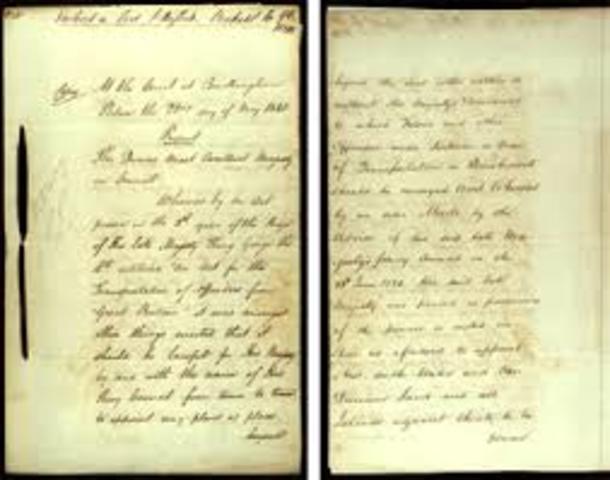 Copy At the Court at Buckingham
Palace the 22nd day of May 1840
Present
The Queens Most Excellent Majesty
in Council
Whereas by an Act
passed in the 5th year of the Reign
of His Late Majesty King George the
4th entitled "An Act for the
Transportation of Offenders from
Great Britain" it was amongst
other things enacted that it
should be lawful for His Majesty
by and with the advice of His
Privy Council from time to time
to appoint any place or places
beyond
beyond the Seas either within or
without His Majesty's Dominions
to which Felons and other
Offenders under Sentence or Order
of Transportation or Banishment
should be conveyed And Whereas
by an order Made by the
Advice of his said late Ma-
jesty's Privy Council on the
June His said late
Majesty was pleased in pursuance
of the power so vested in
him as aforesaid to appoint
New South Wales and Van
Diemens Land and all
Islands adjacent thereto to be